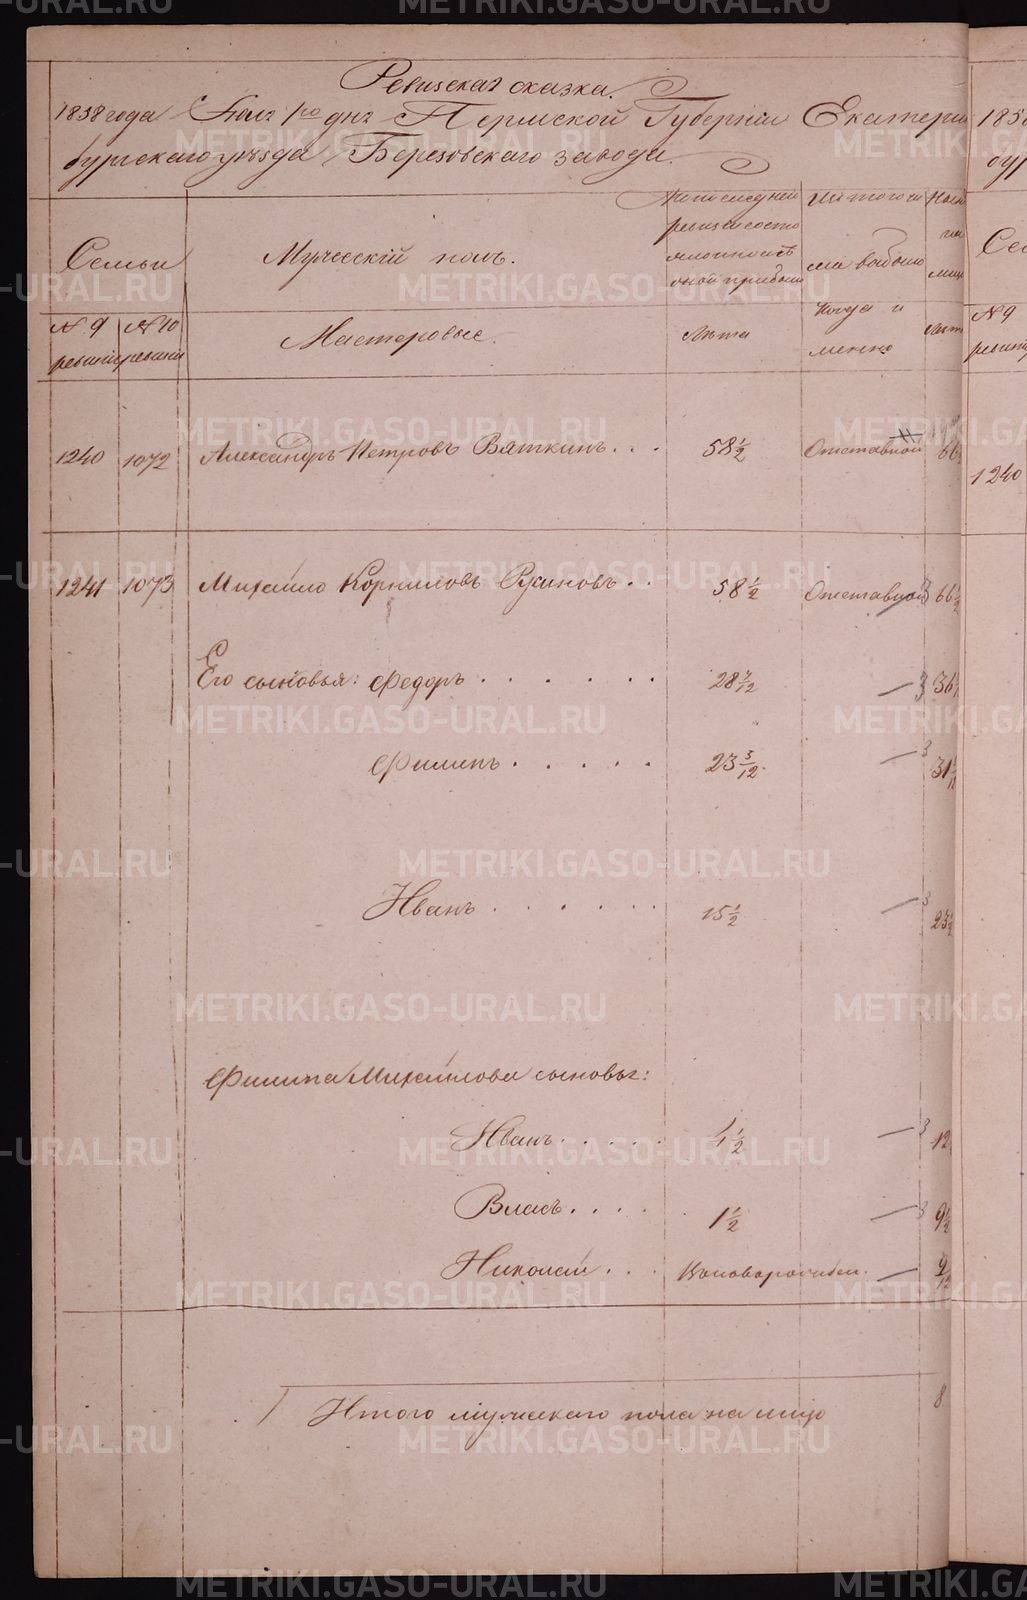 Ревизская сказка.
1858 года Юля 1го дня Пермской Губерніи Екатерин
бургскаго уѣзда Березовскаго завода.
Семьи
Мужескій полъ.
По последней
ревизіи состо
яло и послѣ
оной прибыло
Изъ того чи
сла выбыло
Когда и
имянно
Нынѣ
на
лицо
№ 9 ревизіи
№ 10 ревизіи
Мастеровые.
Лѣта
Лѣта
1240 1072 Александръ Петровъ Вяткинъ . . . 58 1/2 Отставной 66
1241 1073 Михайло Корниловъ Русиновъ . . 58 1/2 Отставной 3 66 1/2
Его сыновья: Федоръ . . . . . . 28 7/12 — 3 36
Филипъ . . . . . 23 3/12 — 3 31
Иванъ . . . . . . 15 1/2 — 3 23 1/2
Филипа Михайлова сыновья:
Иванъ . . . . . 4 1/2 — 3 12
Власъ . . . . . 1 1/2 — 3 9 1/2
Николай . . . Новорожденъ — 9/12
Итого мужескаго пола на лицо 8
185
бур
Сем
№ 9
ревизі
1240
METRIKI.GASO-URAL.RU